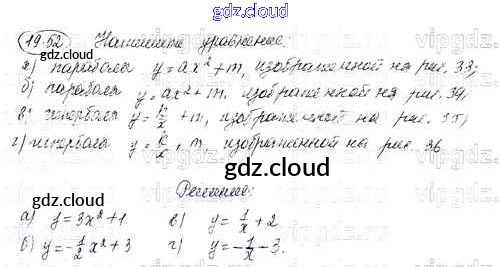 gdz.cloud
19.52. Напишите уравнение.
gdz.cloud
а) параболы y = ax² + m, изображенной на рис. 33;
б) параболы y = ax² + m, изображенной на рис. 34;
в) гиперболы y = k/x + m, изображенной на рис. 35;
г) гиперболы y = k/x + m, изображенной на рис. 36
gdz.cloud
Решение:
а) y = 3x² + 1 в) y = 1/x + 2
б) y = -1/2 x² + 3 г) y = -1/x - 3.
gdz.cloud